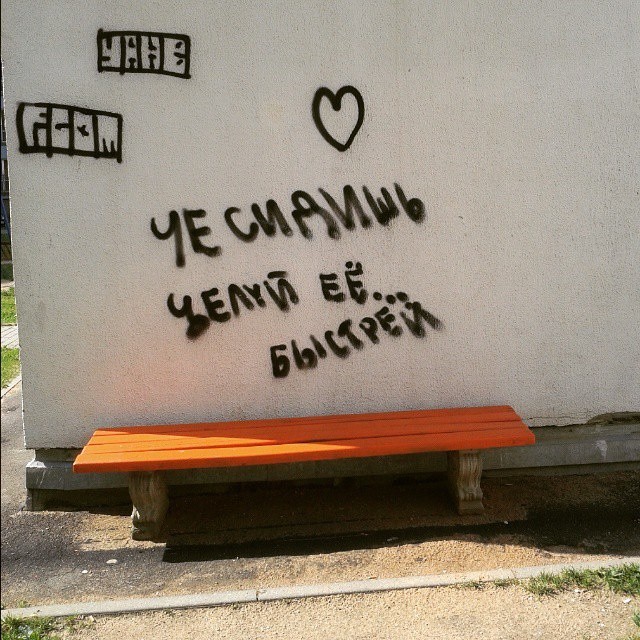 ЧЕ СИДИШЬ
ЦЕЛУЙ ЕЁ...
БЫСТРЕЙ